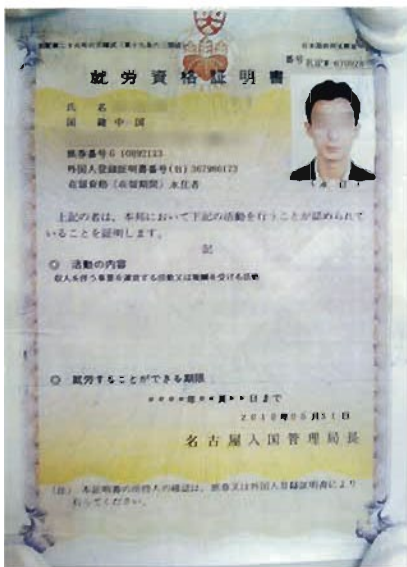 就労資格証明書
氏 名
国 籍 中国
旅券番号G 10892133
外国人登録証明書番号(台) 367986173
在留資格(在留期間)永住者
上記の者は、本邦において下記の活動を行うことが認められて
いることを証明します。
記
◎ 活動の内容
収入を伴う事業を運営する活動又は報酬を受ける活動
◎ 就労することができる期限
年 月 日まで
名古屋入国管理局長
(注) 本証明書の所持人の確認は、旅券又は外国人登録証明書により
行ってください。